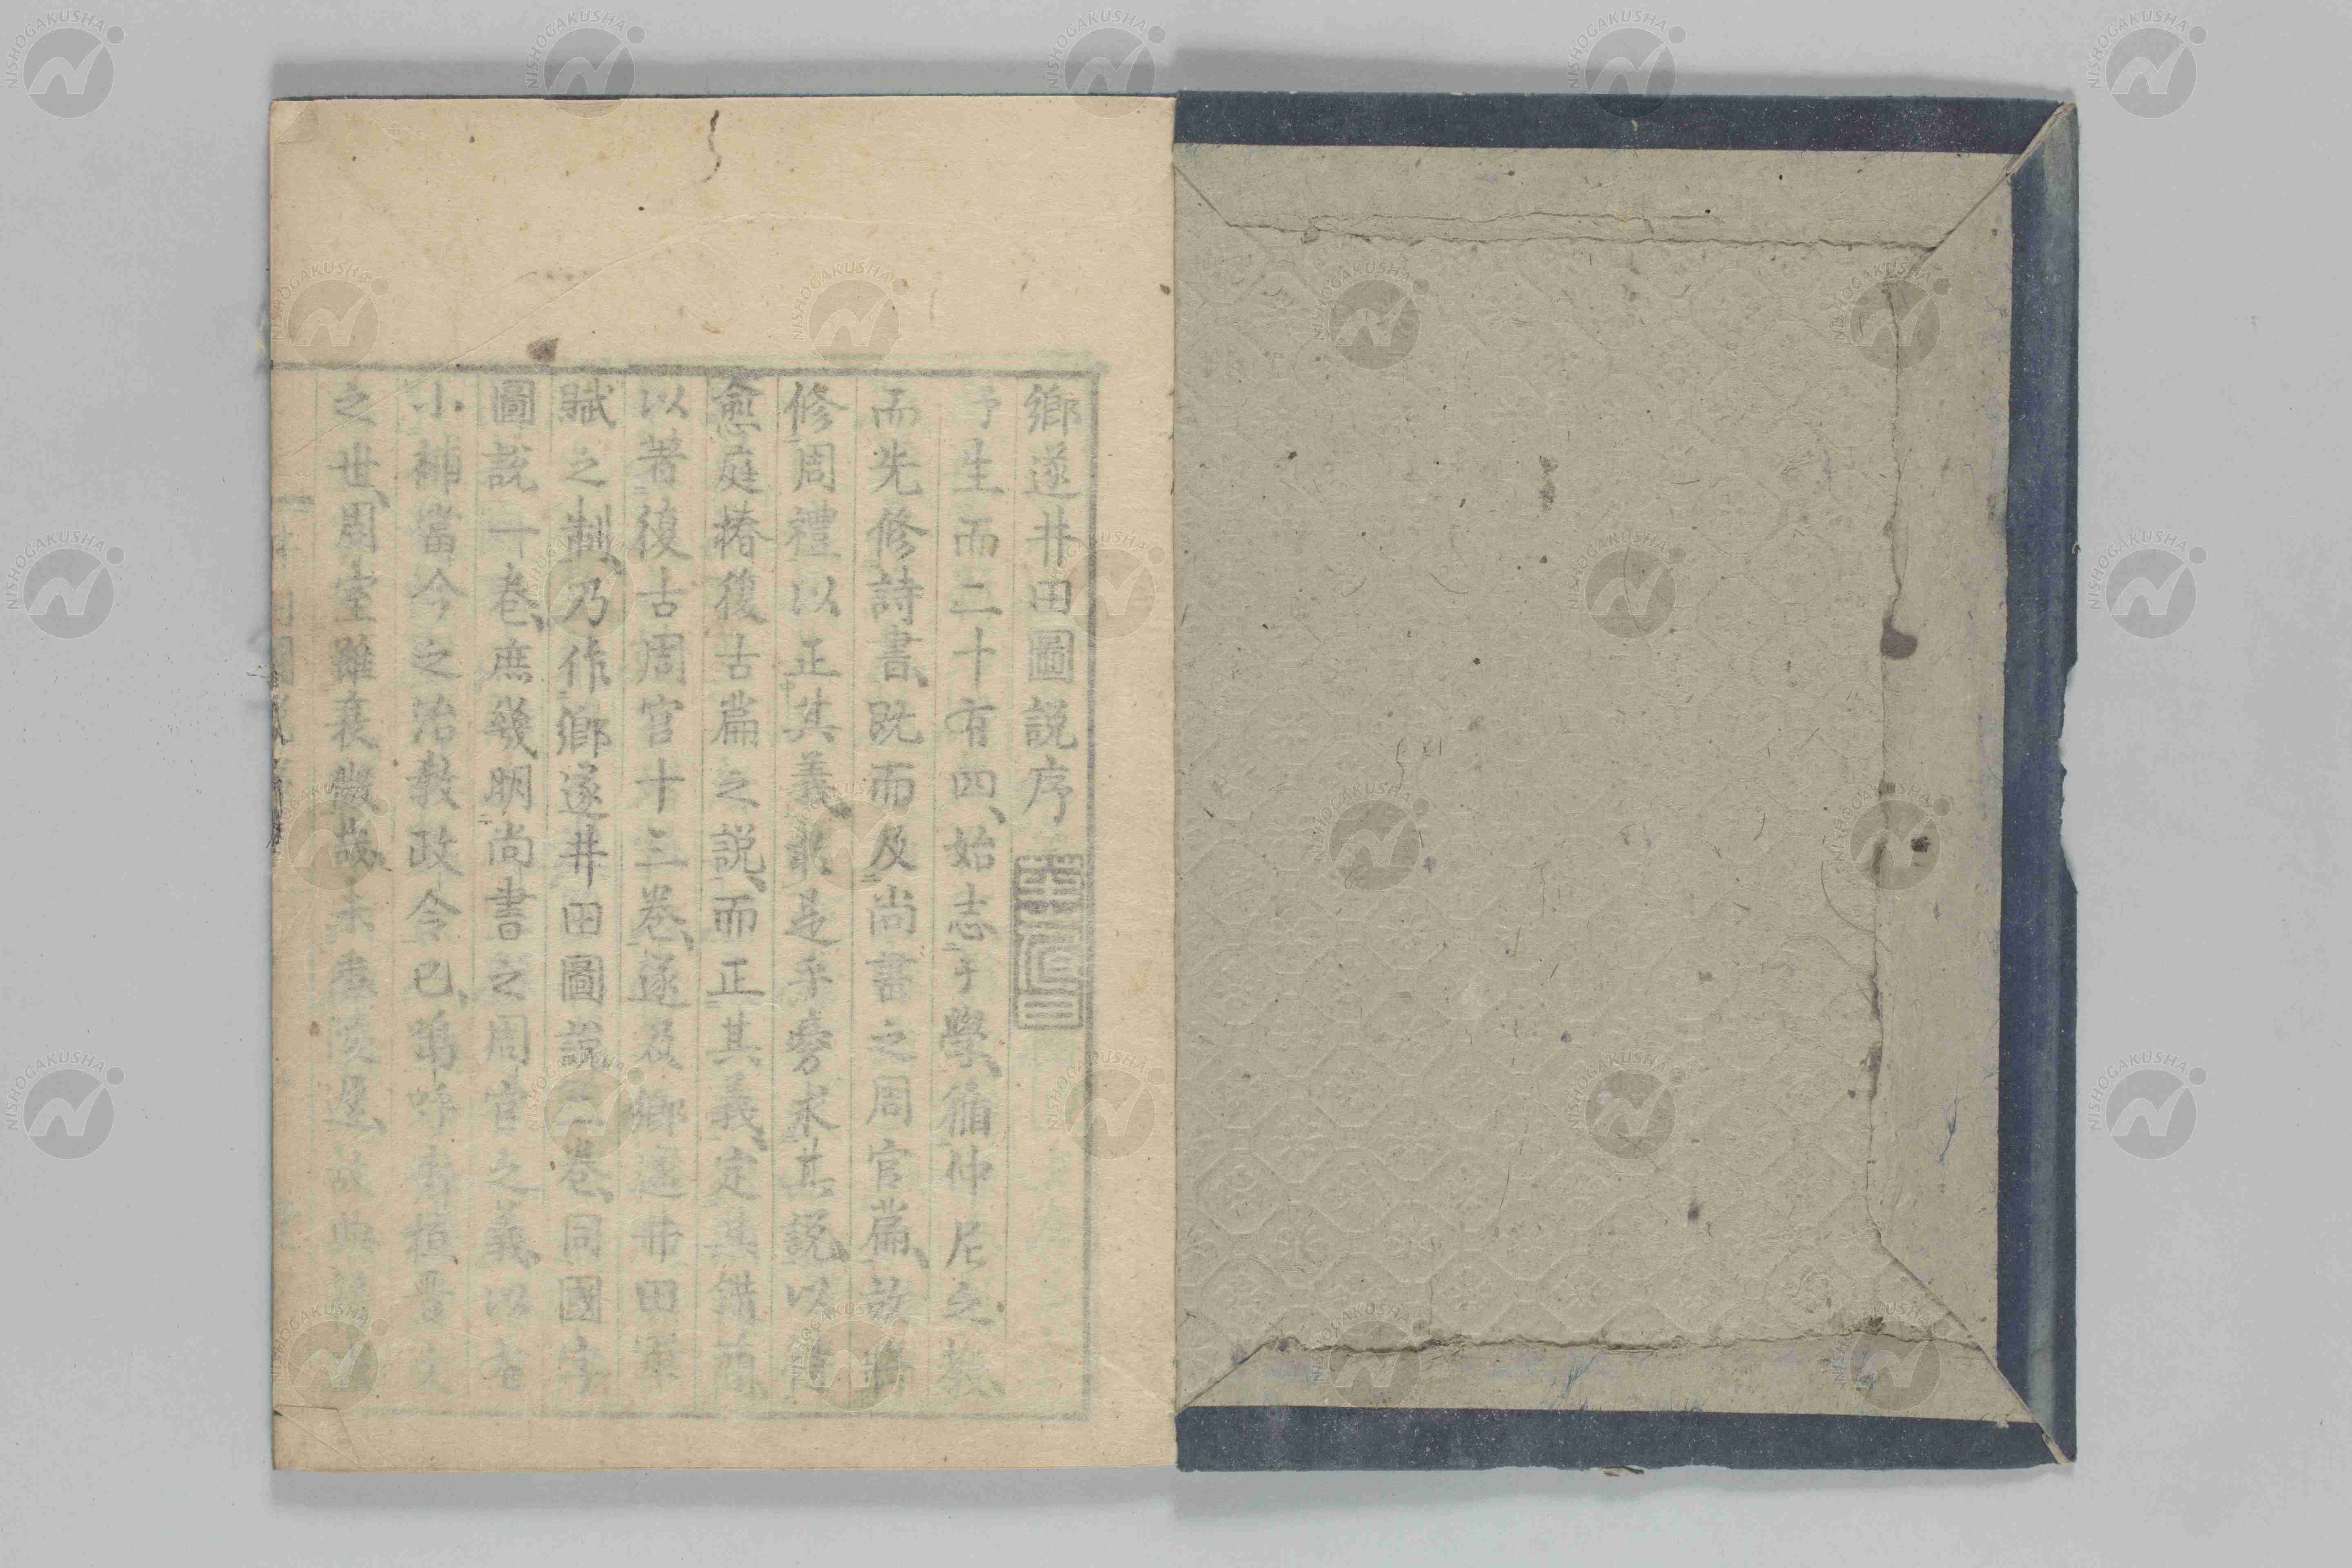 鄉遂井田圖説序
予生而二十有四、始志于學、循仲尼之教、
而先修詩書、既而及尚書之周官篇、故
修周禮以正其義、於是乎旁求其説、以
愈庭椿復古篇之説、而正其義、定其錯簡、
以著復古周官十三卷、遂及鄉遂井田軍
賦之制、乃作鄉遂井田圖説三卷、同國字
圖説一卷、庶幾明尚書之周官之義、以有
小補當今之治教政令已、嗚呼齊桓晉文
之世、周室雖衰微、故未委陵遲、故典
NISHOGAKUSHA